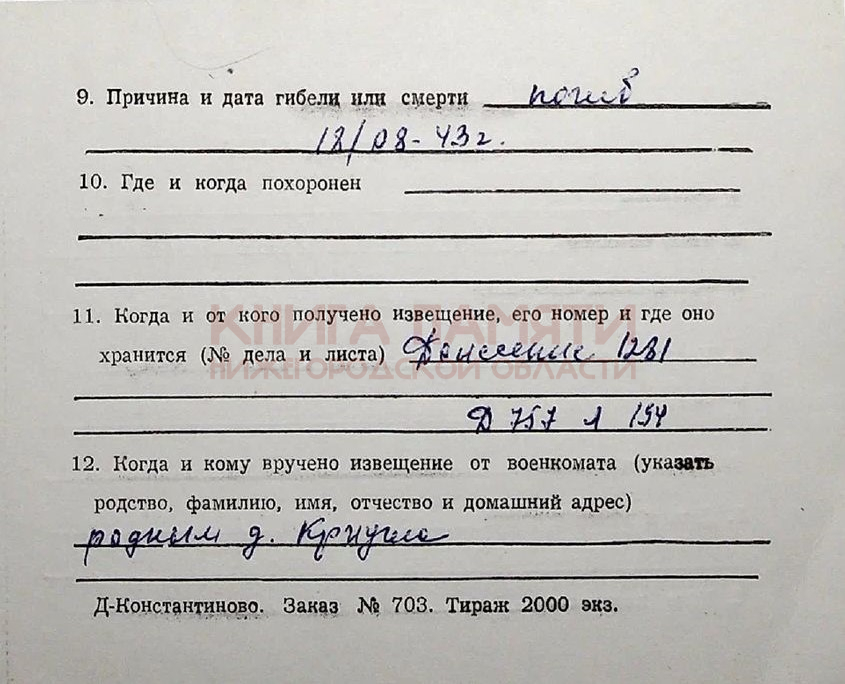 9. Причина и дата гибели или смерти погиб
18/08-43 г.
10. Где и когда похоронен
КНИГА ПАМЯТИ
НИЖЕГОРОДСКОЙ ОБЛАСТИ
11. Когда и от кого получено извещение, его номер и где оно
хранится (№ дела и листа) Донесение 1281
Д 757 л 154
12. Когда и кому вручено извещение от военкомата (указать
родство, фамилию, имя, отчество и домашний адрес)
родным д. Криуша
Д-Константиново. Заказ № 703. Тираж 2000 экз.